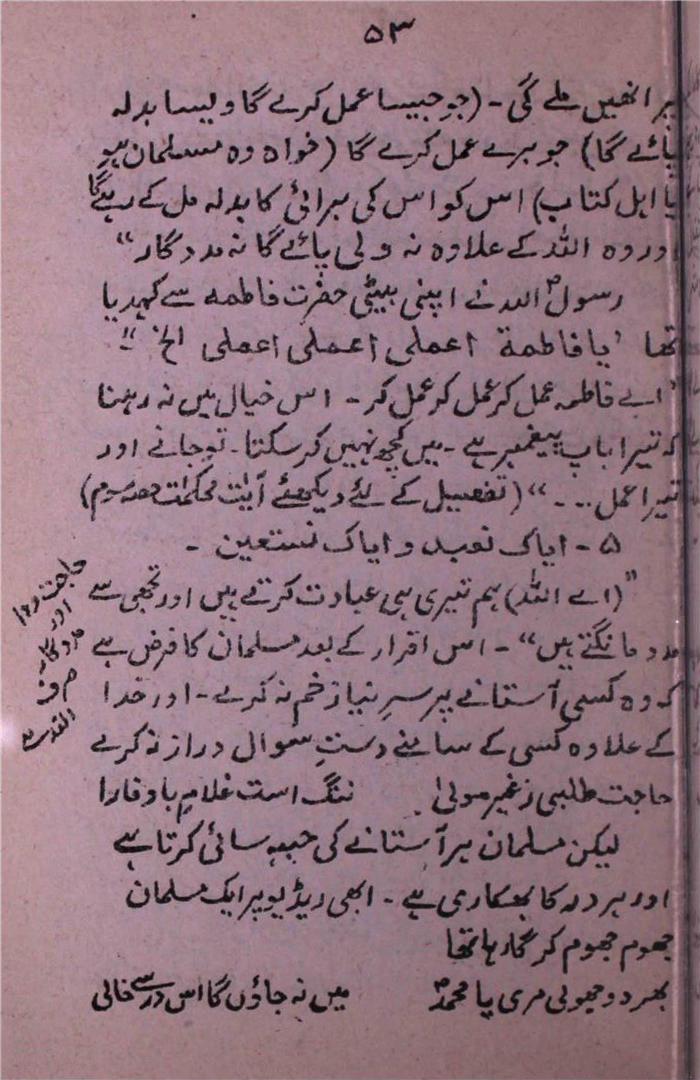 ۵۳
پر انھیں ملے گی ۔ (جو جیسا عمل کرے گا ویسا بدلہ
پائے گا) جو برے عمل کرے گا (خواہ وہ مسلمان ہو
یا اہل کتاب) اس کو اس کی برائی کا بدلہ مل کے رہے گا
اور وہ اللہ کے علاوہ نہ ولی پائے گا نہ مددگار“
رسولؐ اللہ نے اپنی بیٹی حضرت فاطمہ سے کہدیا
تھا ’یا فاطمة اعملی اعملی اعملی الخ‘ :۔
”اے فاطمہ عمل کر عمل کر عمل کر ۔ اس خیال میں نہ رہنا
کہ تیرا باپ پیغمبر ہے ۔ میں کچھ نہیں کر سکتا ۔ تو جانے اور
تیرا عمل ۔۔۔“ (تفصیل کے لئے دیکھئے آیٰت محکمٰت حصہ سوم)
۵ ۔ ایاک نعبد و ایاک نستعین ۔
”(اے اللہ) ہم تیری ہی عبادت کرتے ہیں اور تجھی سے
مدد مانگتے ہیں“ ۔ اس اقرار کے بعد مسلمان کا فرض ہے
کہ وہ کسی آستانے پر سرِ نیاز خم نہ کرے ۔ اور خدا
کے علاوہ کسی کے سامنے دستِ سوال دراز نہ کرے
حاجت روا
اور
مددگار
صرف
اللہ ہے
حاجت طلبی ز غیر مولیٰ ننگ است غلامِ باوفا را
لیکن مسلمان ہر آستانے کی جبہہ سائی کرتا ہے
اور ہر در کا بھکاری ہے ۔ ابھی ریڈیو پر ایک مسلمان
جھوم جھوم کر گا رہا تھا
بھر دو جھولی مری یا محمدؐ میں نہ جاؤں گا اس در سے خالی